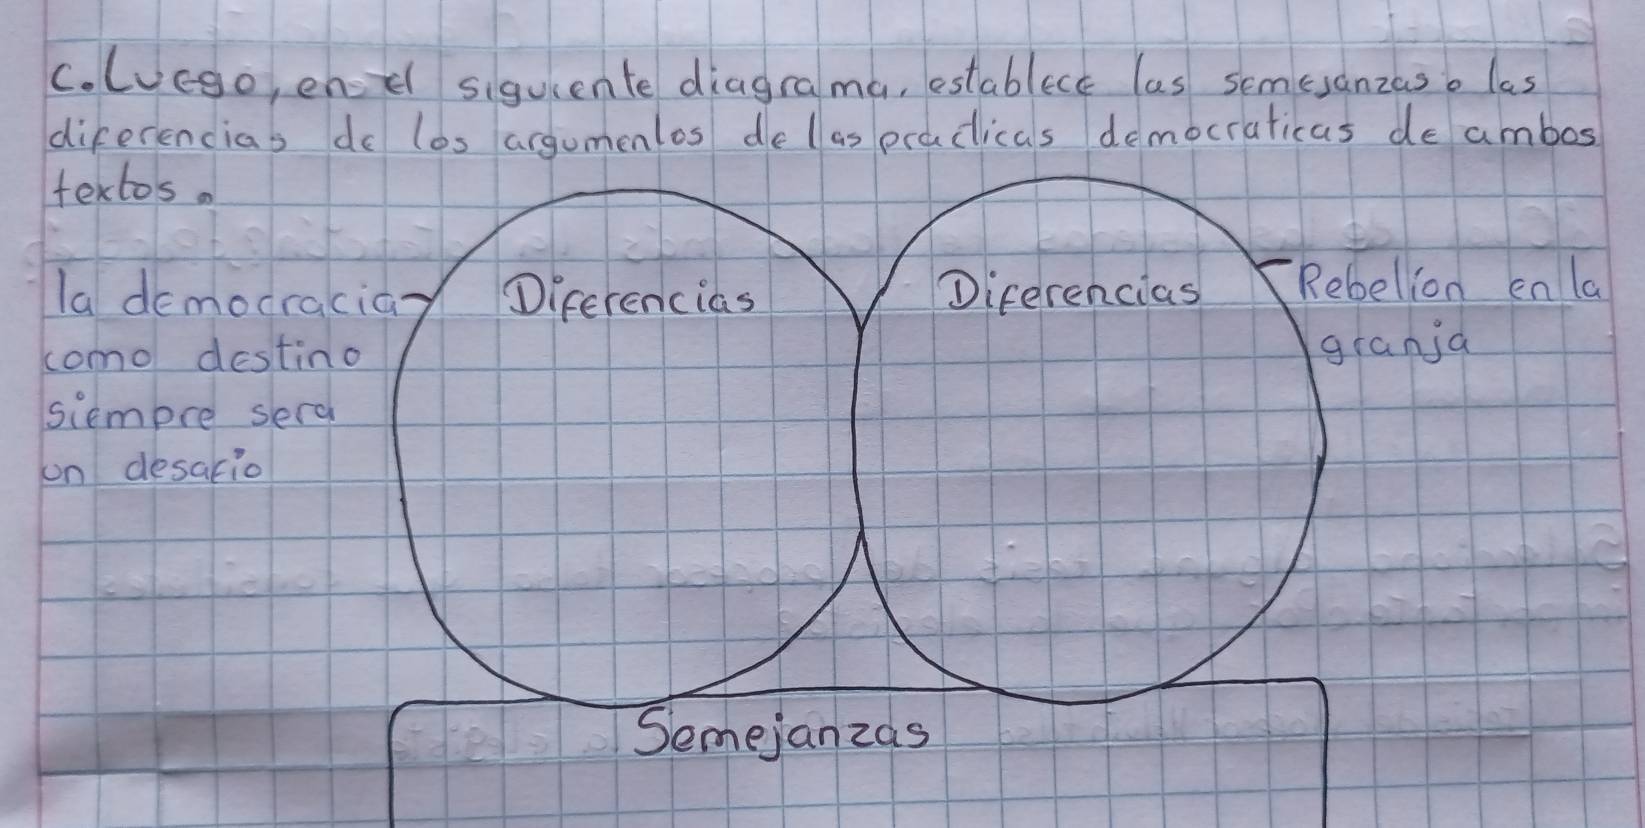 C. Luego, en el siguiente diagrama, establece las semejanzas o las
diferencias de los argumentos de las practicas democraticas de ambos
textos.
la democracia
como destino
siempre sera
un desafio
Diferencias
Diferencias
Rebelion en la
granja
Semejanzas